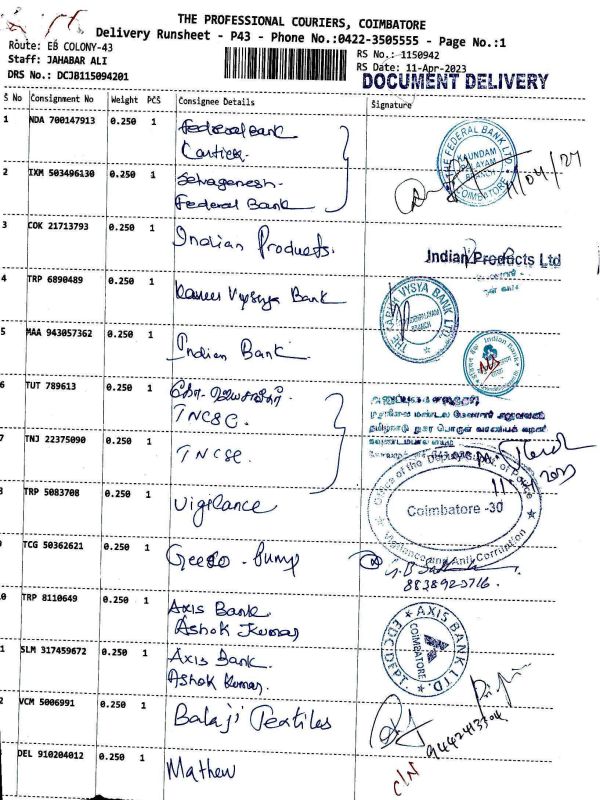 THE PROFESSIONAL COURIERS, COIMBATORE
Delivery Runsheet - P43 - Phone No.:0422-3505555 - Page No.:1
Route: EB COLONY-43
RS No.: 1150942
Staff: JAHABAR ALI
RS Date: 11-Apr-2023
DRS No.: DCJB115094201
DOCUMENT DELIVERY
S No Consignment No Weight PCS Consignee Details Signature
1 NDA 700147913 0.250 1 Federal Bank
THE FEDERAL BANK LTD
KAUNDAM PALAYAM BRANCH
COIMBATORE
2 IXM 503496130 0.250 1 Selvaganesh.
Federal Bank
3 COK 21713793 0.250 1 Indian Products.
Indian Products Ltd
4 TRP 6890489 0.250 1 Karur Vysya Bank
THE KARUR VYSYA BANK LTD.
BRANCH
5 MAA 943057362 0.250 1 Indian Bank
Indian Bank
6 TUT 789613 0.250 1
TNCSC.
7 TNJ 22375090 0.250 1 TNCSC
8 TRP 5083708 0.250 1 Vigilance
Office of the
of Police
Coimbatore -30
Vigilance and Anti Corruption
9 TCG 50362621 0.250 1
8838923716.
10 TRP 8110649 0.250 1 Axis Bank
Ashok Kumar
AXIS BANK LTD.
COIMBATORE
11 SLM 317459672 0.250 1 Axis Bank.
Ashok Kumar.
12 VCM 5006991 0.250 1 Balaji Textiles
DEL 910204012 0.250 1 Mathew
C/N